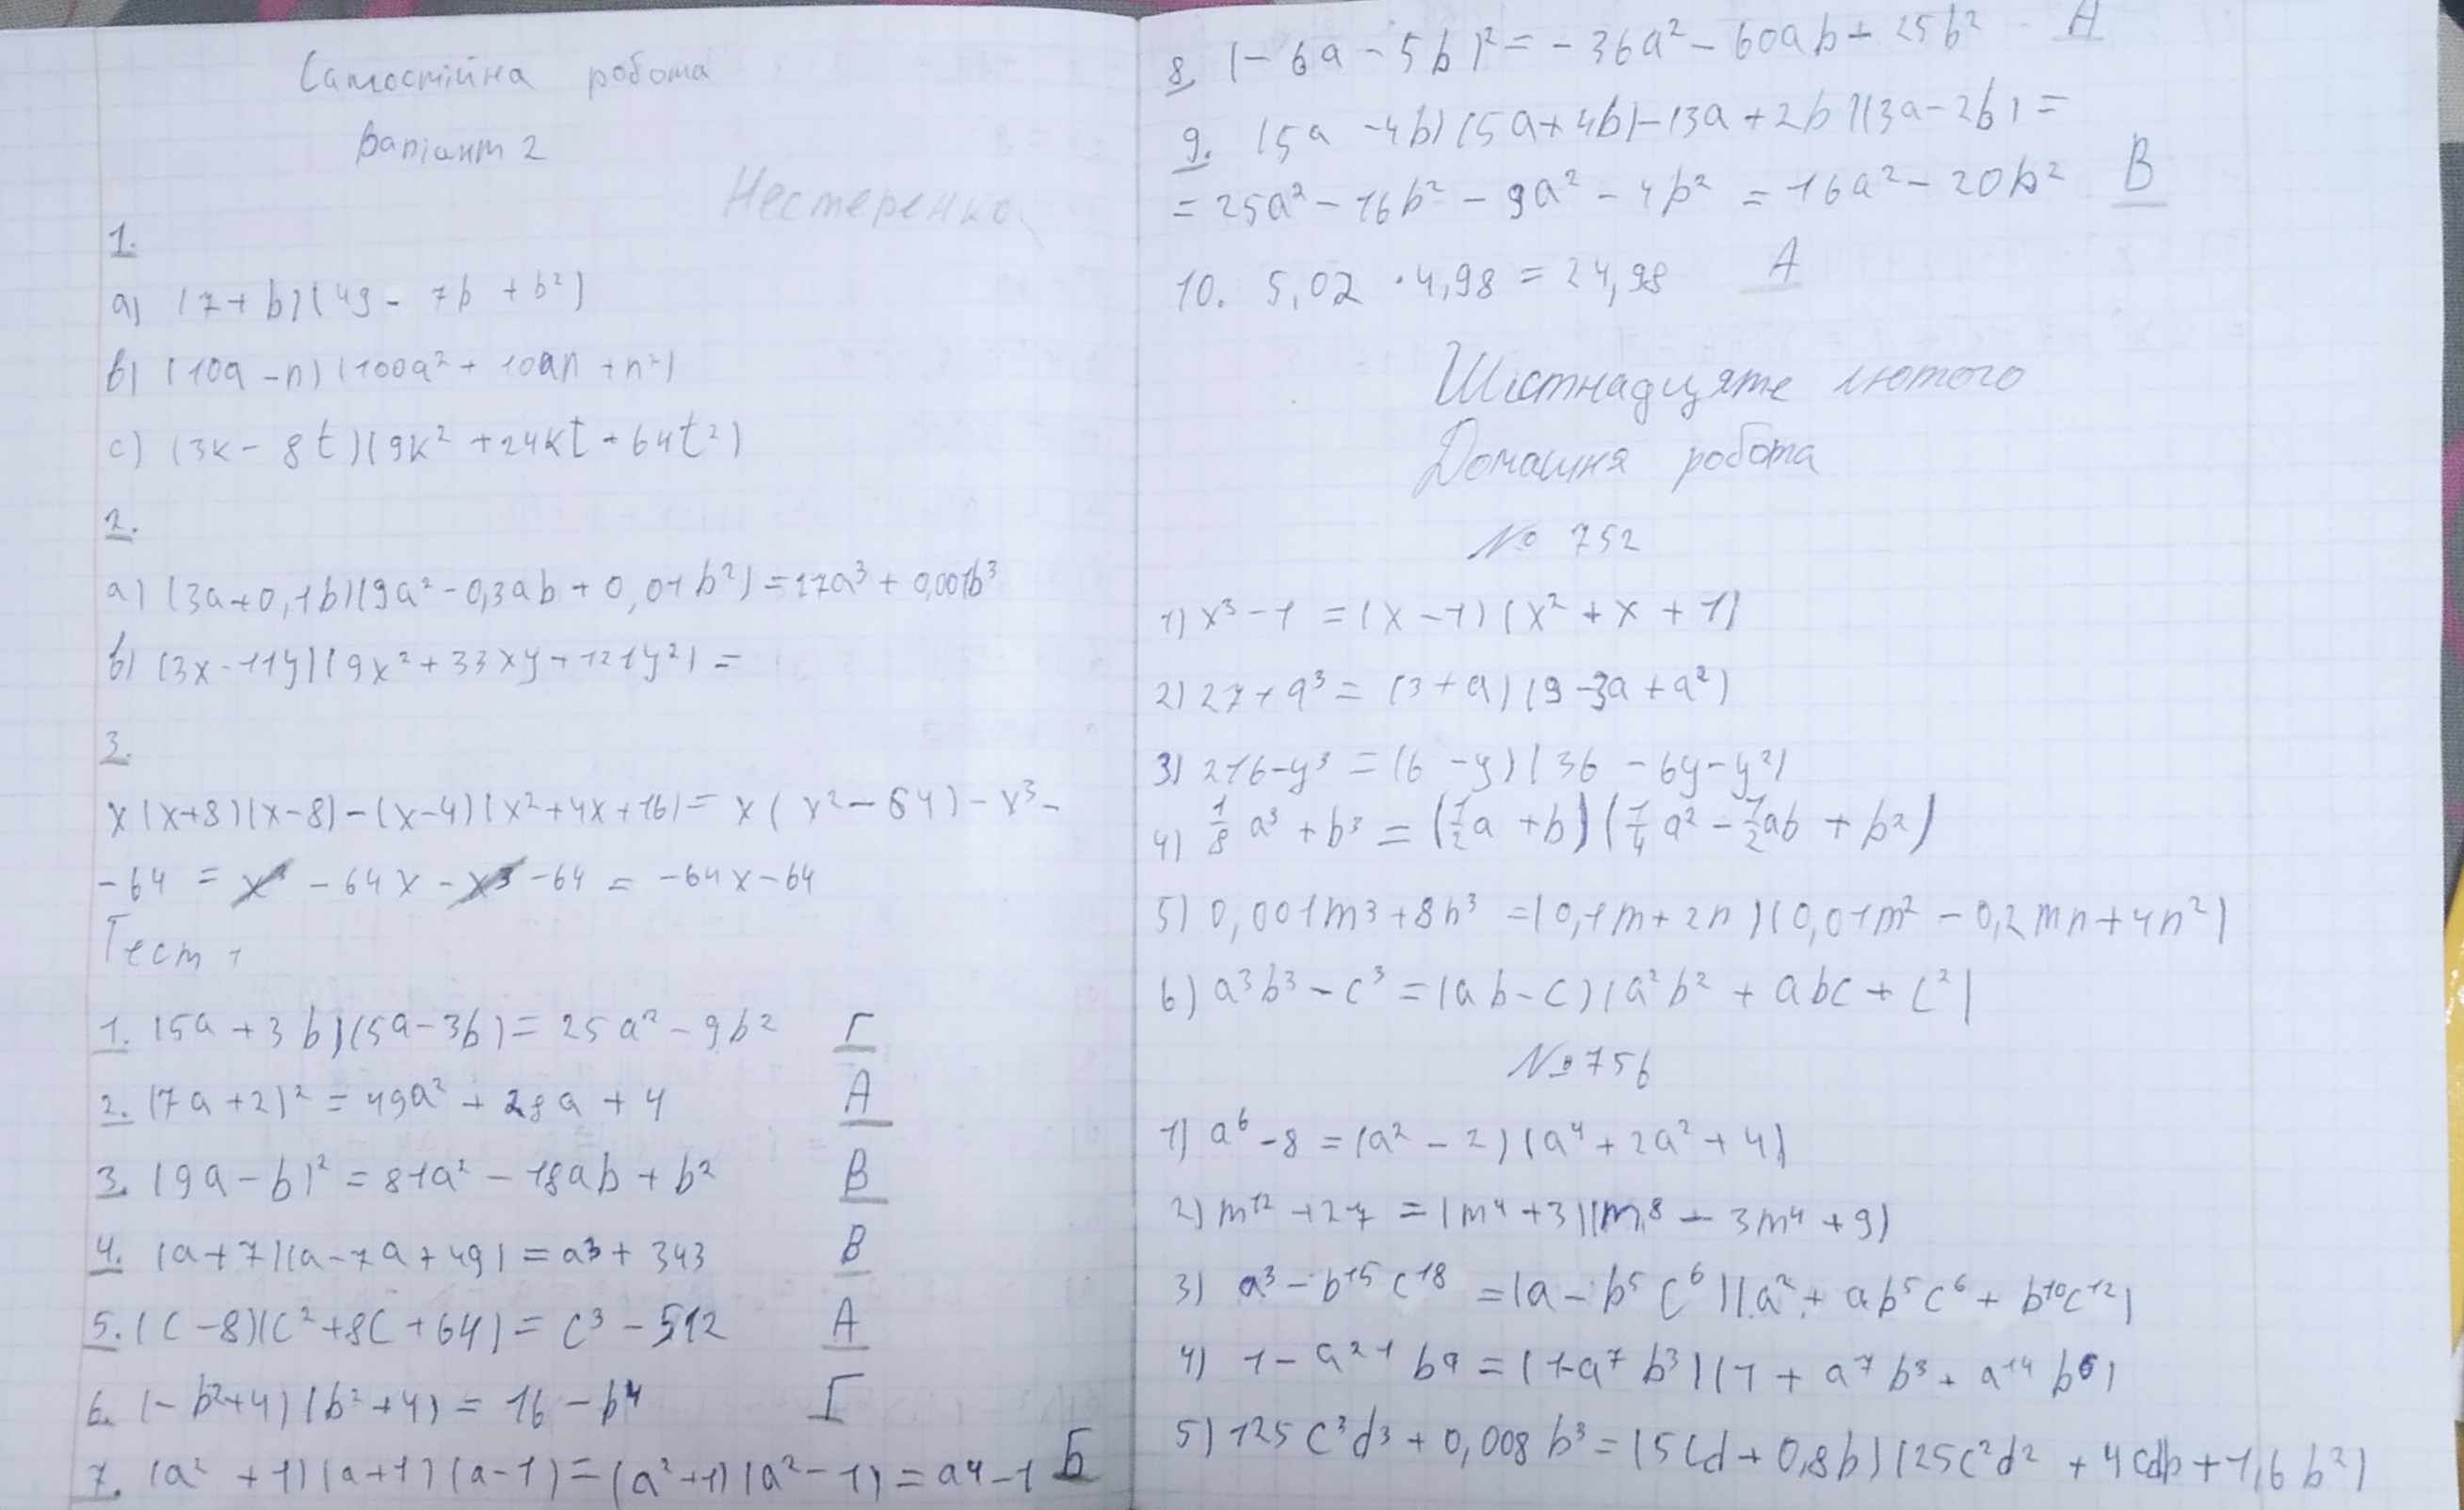 Самостійна робота
Варіант 2
Нестеренко
1.
a) (7+b)(49 - 7b + b²)
б) (10a - n)(100a² + 10an + n²)
c) (3к - 8t)(9к² + 24кt + 64t²)
2.
a) (3a+0,1b)(9a² - 0,3ab + 0,01b²) = 27a³ + 0,001b³
б) (3x - 11y)(9x² + 33xy + 121y²) =
3.
x(x+8)(x-8) - (x-4)(x²+4x+16) = x(x² - 64) - x³ -
- 64 = x³ - 64x - x³ - 64 = -64x - 64
Тест 1
1. (5a + 3b)(5a - 3b) = 25a² - 9b² Г
2. (7a + 2)² = 49a² + 28a + 4 А
3. (9a - b)² = 81a² - 18ab + b² В
4. (a + 7)(a - 7a + 49) = a³ + 343 В
5. (c - 8)(c² + 8c + 64) = c³ - 512 А
6. (-b²+4)(b²+4) = 16 - b⁴ Г
7. (a² + 1)(a+1)(a-1) = (a²+1)(a²-1) = a4 - 1 Б
8. (-6a - 5b)² = -36a² - 60ab + 25b² А
9. (5a - 4b)(5a + 4b) - (3a + 2b)(3a - 2b) =
= 25a² - 16b² - 9a² - 4b² = 16a² - 20b² В
10. 5,02 · 4,98 = 24,98 А
Шістнадцяте лютого
Домашня робота
№ 752
1) x³ - 1 = (x - 1)(x² + x + 1)
2) 27 + a³ = (3 + a)(9 - 3a + a²)
3) 216 - y³ = (6 - y)(36 - 6y - y²)
4) 1/8 a³ + b³ = (1/2 a + b)(1/4 a² - 1/2 ab + b²)
5) 0,001m3 + 8n³ = (0,1m + 2n)(0,01m² - 0,2mn + 4n²)
6) a³b³ - c³ = (ab - c)(a²b² + abc + c²)
№ 756
1) a⁶ - 8 = (a² - 2)(a⁴ + 2a² + 4)
2) m¹² + 27 = (m⁴ + 3)(m⁸ - 3m⁴ + 9)
3) a³ - b¹⁵c¹⁸ = (a - b⁵c⁶)(a² + ab⁵c⁶ + b¹⁰c¹²)
4) 1 - a²¹b9 = (1-a⁷b³)(1 + a⁷b³ + a¹⁴b⁶)
5) 125c³d³ + 0,008b³ = (5cd + 0,8b)(25c²d² + 4cdb + 1,6b²)